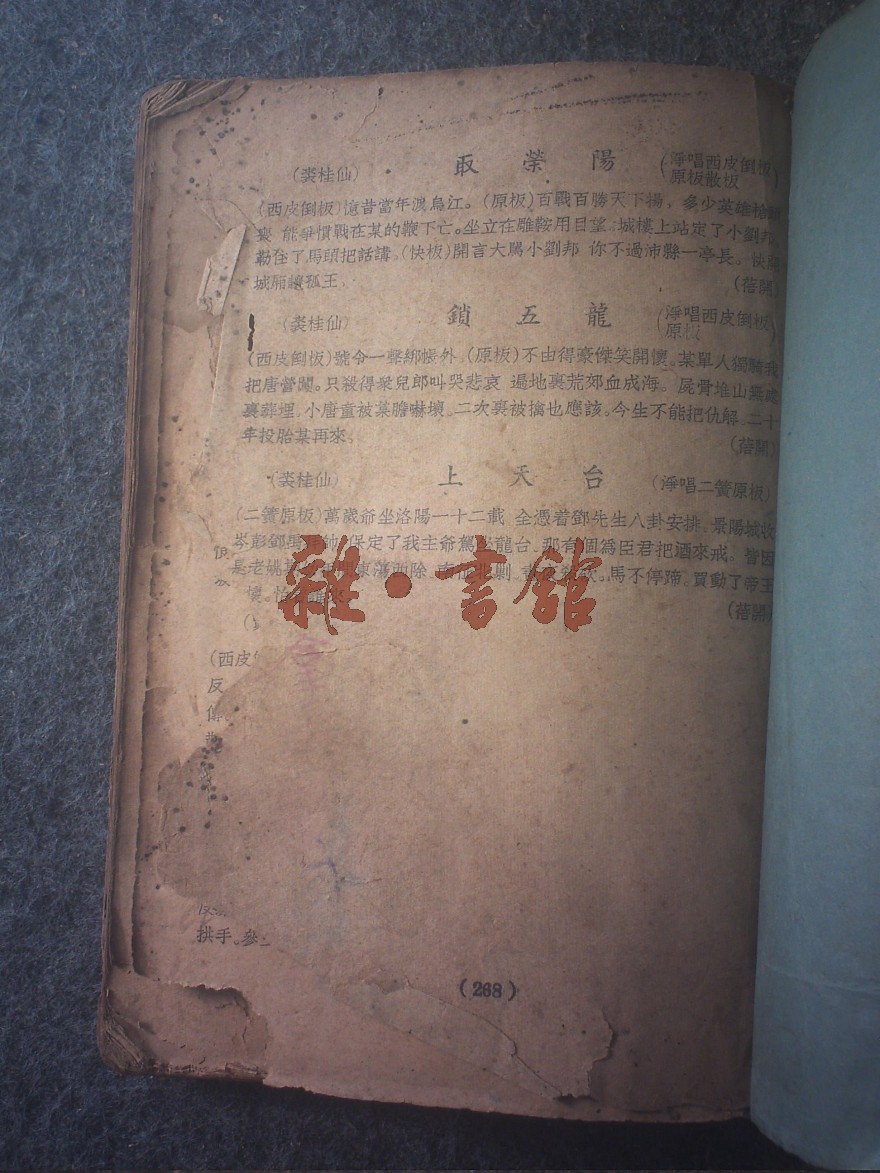 (裘桂仙) 取榮陽 (淨唱西皮倒板
原板散板)
(西皮倒板)憶昔當年渡烏江。(原板)百戰百勝天下揚，多少英雄
能爭慣戰在某的鞭下亡。坐立在雕鞍用目望，城樓上站定了小劉邦
勒住了馬頭把話講。(快板)開言大罵小劉邦 你不過沛縣一亭長。快
城廂讓孤王。 (蓓開)
(裘桂仙) 鎖五龍 (淨唱西皮倒板
原板)
(西皮倒板)號令一聲綁帳外。(原板)不由得豪傑笑開懷。某單人獨騎我
把唐營闖。只殺得衆兒郎叫哭悲哀 遍地裏荒郊血成海。屍骨堆山無處
裏葬埋。小唐童被某膽嚇壞。二次裏被擒也應該。今生不能把仇解。二十
年投胎某再來。 (蓓開)
(裘桂仙) 上天台 (淨唱二簧原板)
(二簧原板)萬歲爺坐洛陽一十二載 全憑着鄧先生八卦安排。景陽城收
岑彭鄧馬 帥 保定了我主爺駕坐龍台。那有個爲臣君把酒來戒。皆因
是老姚 東蕩西除 南征北剿 馬不停蹄。買動了帝王
懷。 (蓓開)
(西皮
反
拱手。參
雜·書館
(268)